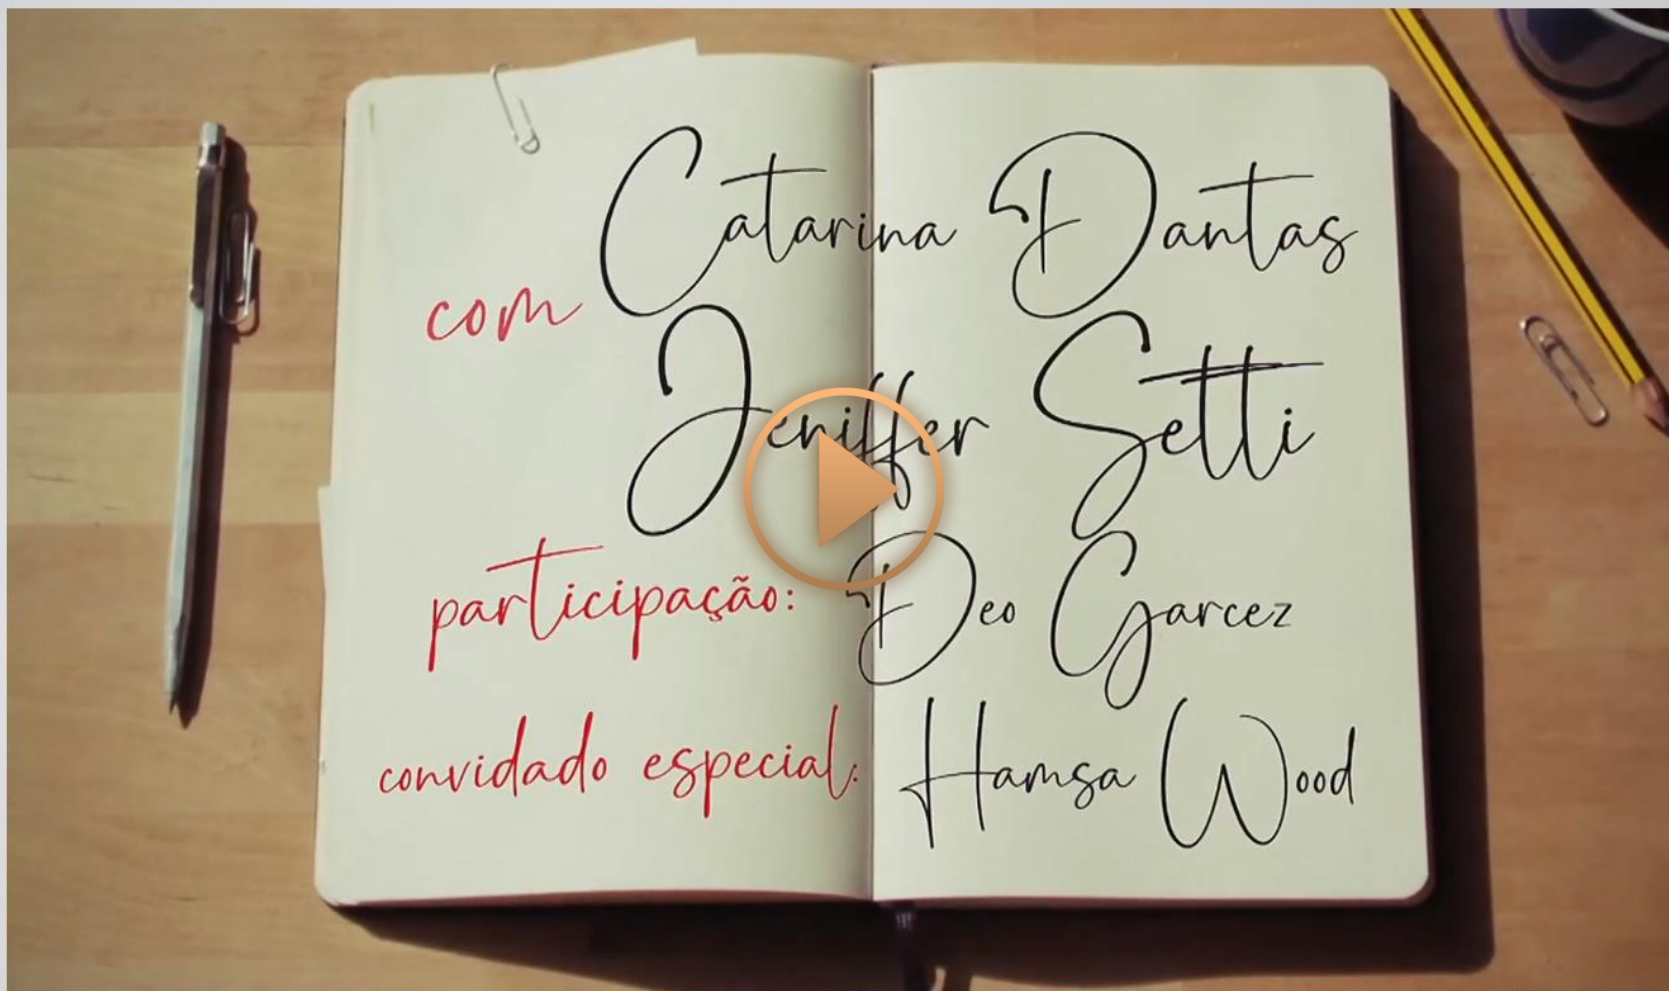 com
Catarina Dantas
Jeniffer Setti
participação: Deo Garcez
convidado especial: Hamsa Wood